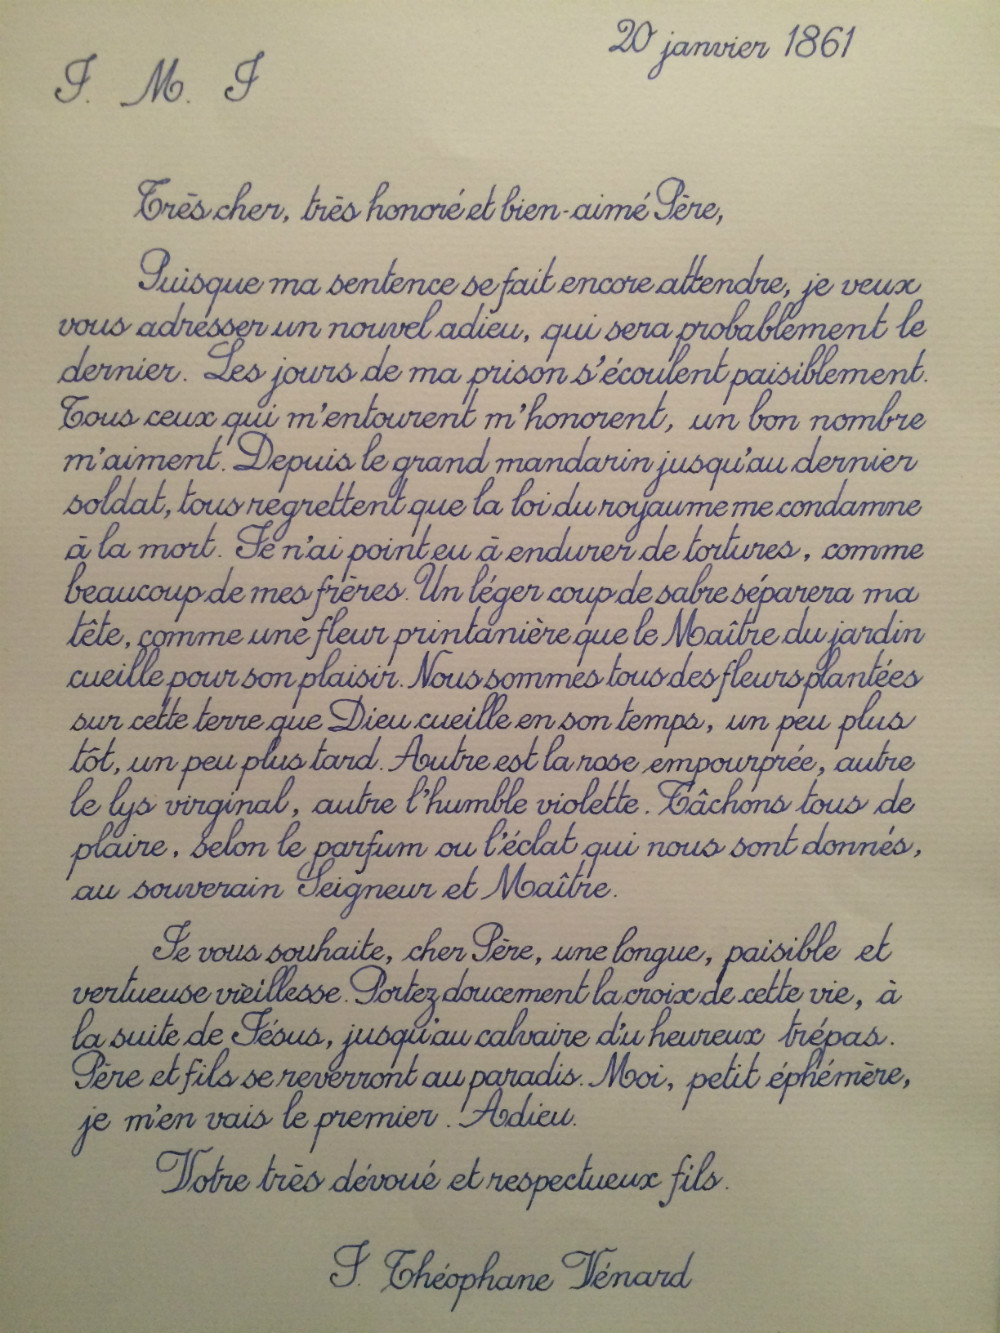 20 janvier 1861
J. M. J
Très cher, très honoré et bien-aimé Père,
Puisque ma sentence se fait encore attendre, je veux
vous adresser un nouvel adieu, qui sera probablement le
dernier. Les jours de ma prison s'écoulent paisiblement.
Tous ceux qui m'entourent m'honorent, un bon nombre
m'aiment. Depuis le grand mandarin jusqu'au dernier
soldat, tous regrettent que la loi du royaume me condamne
à la mort. Je n'ai point eu à endurer de tortures, comme
beaucoup de mes frères. Un léger coup de sabre séparera ma
tête, comme une fleur printanière que le Maître du jardin
cueille pour son plaisir. Nous sommes tous des fleurs plantées
sur cette terre que Dieu cueille en son temps, un peu plus
tôt, un peu plus tard. Autre est la rose empourprée, autre
le lys virginal, autre l'humble violette. Tâchons tous de
plaire, selon le parfum ou l'éclat qui nous sont donnés,
au souverain Seigneur et Maître.
Je vous souhaite, cher Père, une longue, paisible et
vertueuse vieillesse. Portez doucement la croix de cette vie, à
la suite de Jésus, jusqu'au calvaire d'u heureux trépas.
Père et fils se reverront au paradis. Moi, petit éphémère,
je m'en vais le premier. Adieu.
Votre très dévoué et respectueux fils.
J. Théophane Vénard